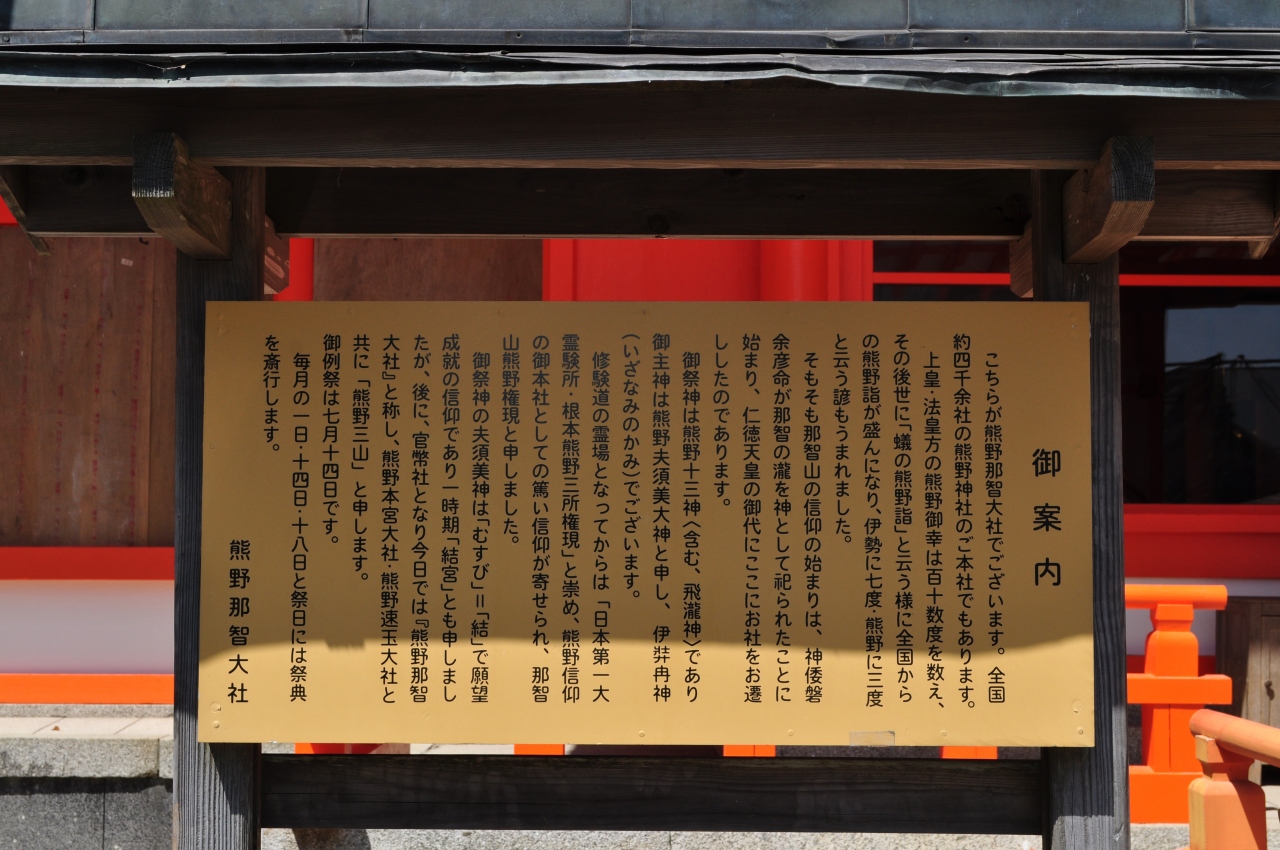 御案内
こちらが熊野那智大社でございます。全国
約四千余社の熊野神社のご本社でもあります。
上皇・法皇方の熊野御幸は百十数度を数え、
その後世に「蟻の熊野詣」と云う様に全国から
の熊野詣が盛んになり、伊勢に七度・熊野に三度
と云う諺もうまれました。
そもそも那智山の信仰の始まりは、神倭磐
余彦命が那智の瀧を神として祀られたことに
始まり、仁徳天皇の御代にここにお社をお遷
ししたのであります。
御祭神は熊野十三神〈含む、飛瀧神〉であり
御主神は熊野夫須美大神と申し、伊弉冉神
(いざなみのかみ)でございます。
修験道の霊場となってからは「日本第一大
霊験所・根本熊野三所権現」と崇め、熊野信仰
の御本社としての篤い信仰が寄せられ、那智
山熊野権現と申しました。
御祭神の夫須美神は「むすび」＝「結」で願望
成就の信仰であり一時期「結宮」とも申しまし
たが、後に、官幣社となり今日では『熊野那智
大社』と称し、熊野本宮大社・熊野速玉大社と
共に「熊野三山」と申します。
御例祭は七月十四日です。
毎月の一日・十四日・十八日と祭日には祭典
を斎行します。
熊野那智大社